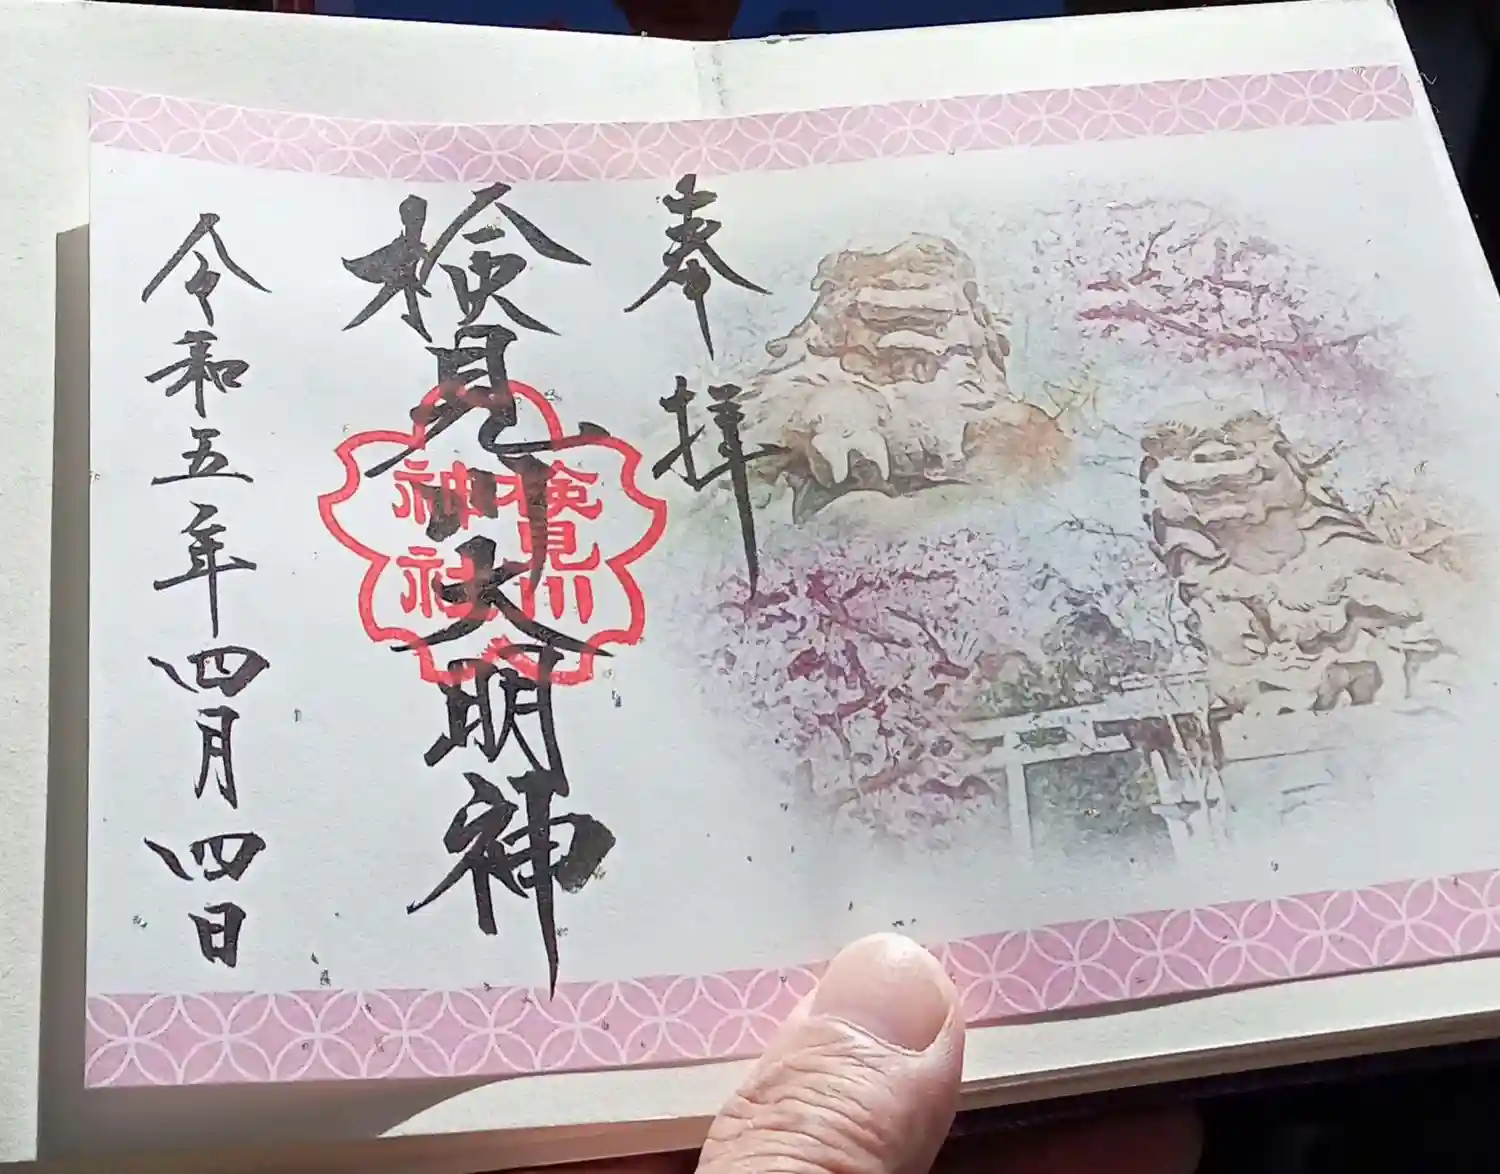 奉拝
検見川大明神
検見川
神社
令和五年四月四日